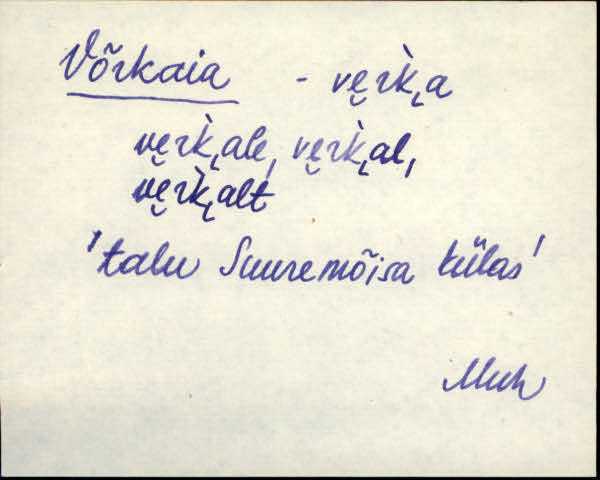 Võrkaia - ve̮rk̀ˎa
ve̮rk̀ˎale, ve̮rk̀ˎal,
ve̮rk̀ˎalt
'talu Suuremõisa külas'
Muh